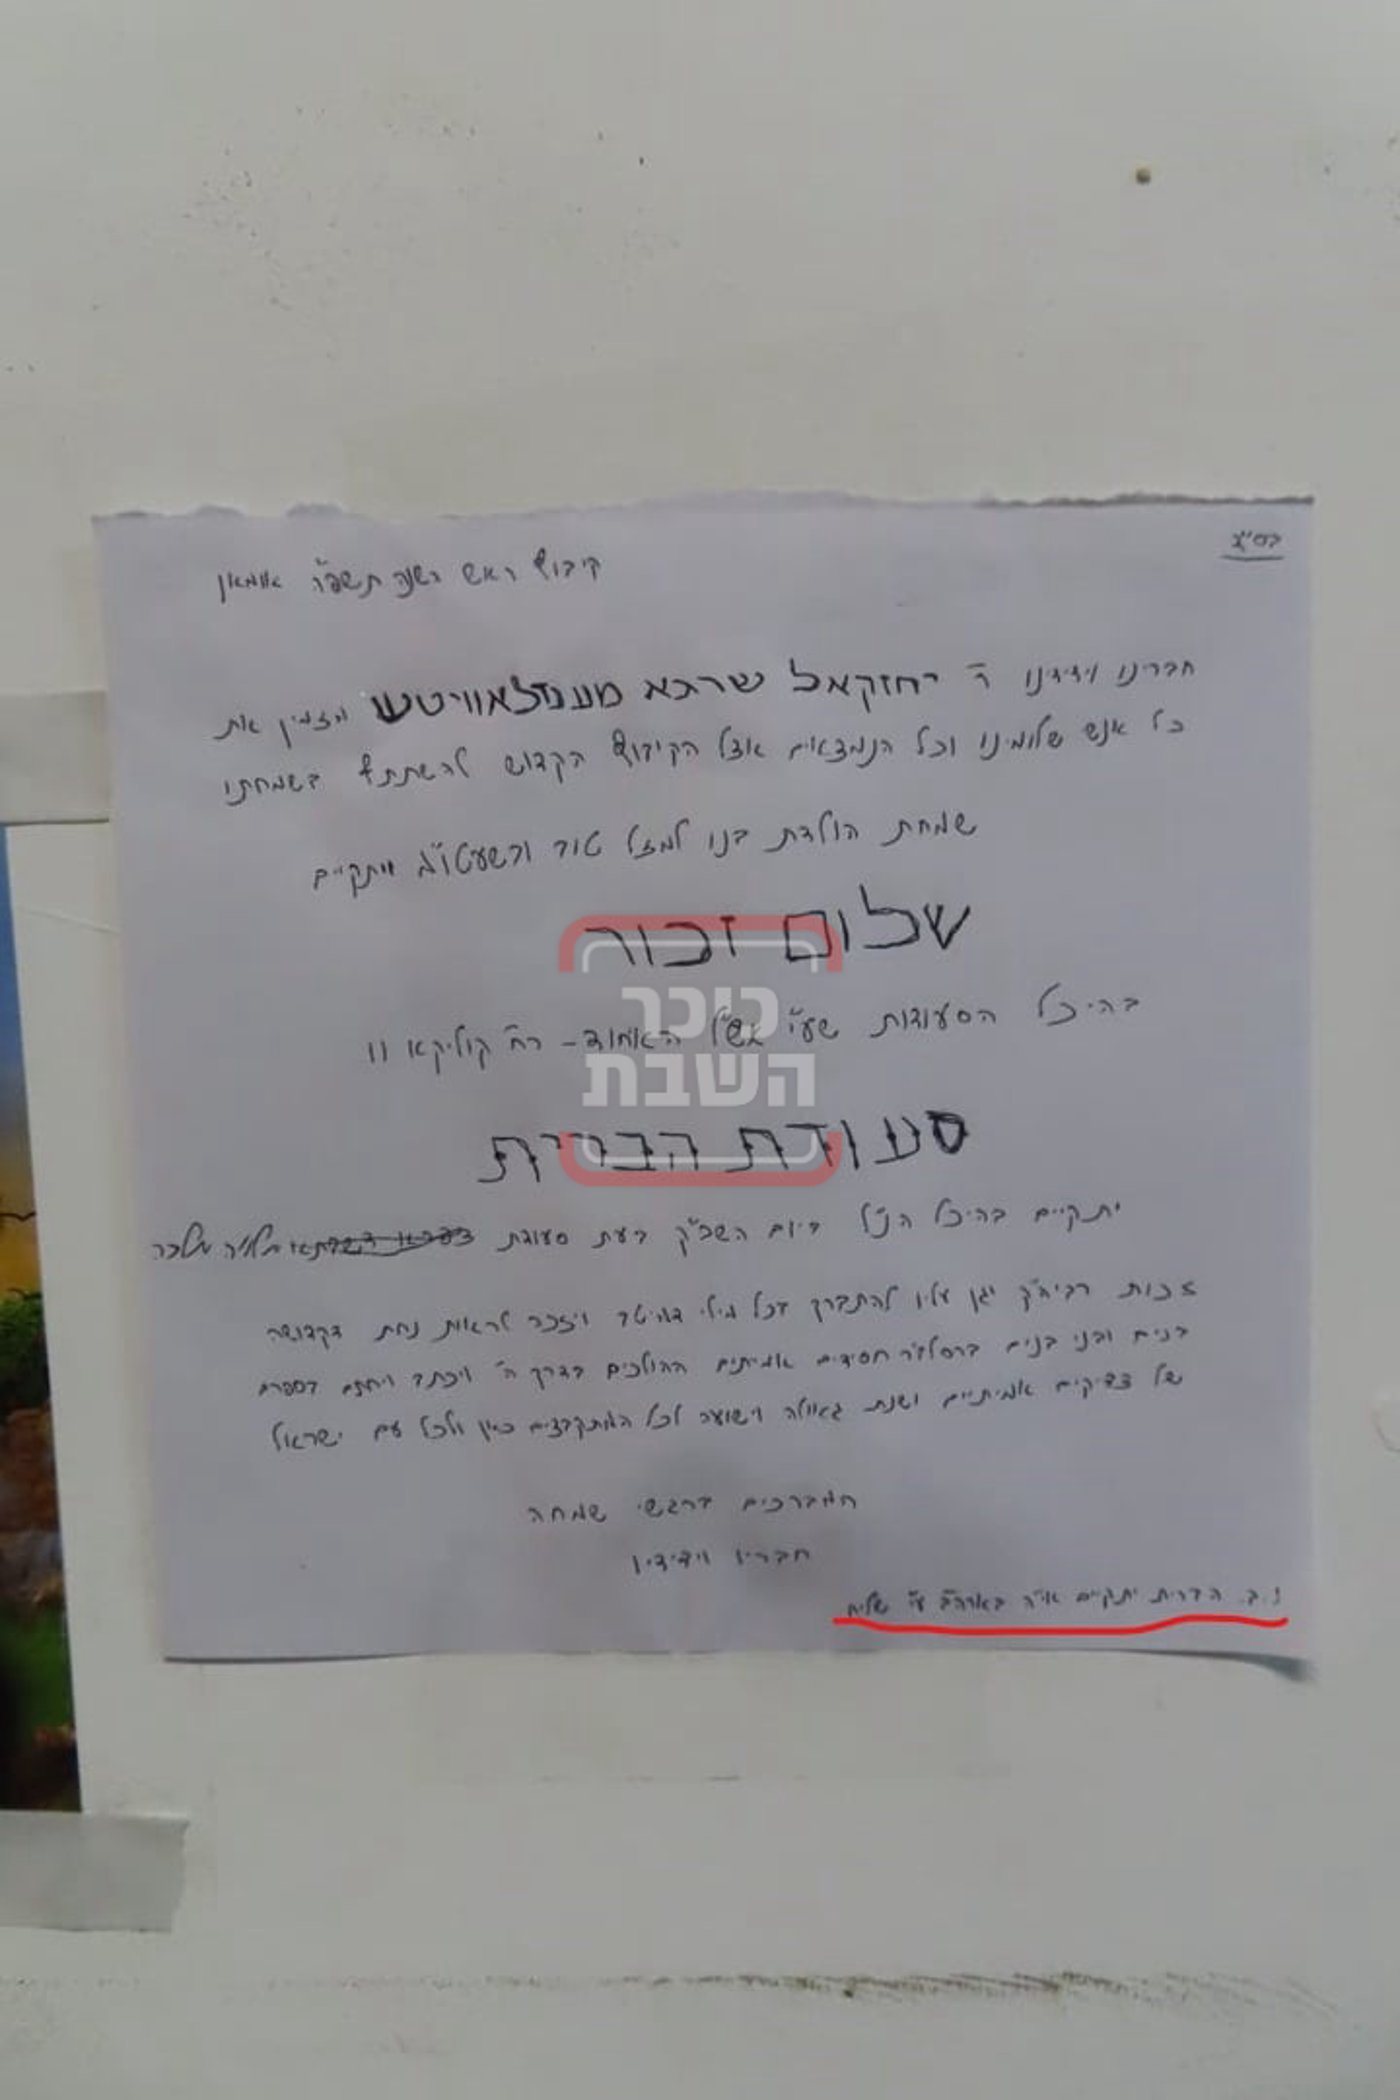 בס"ד
קיבוץ ראש השנה תשפ"ה אומאן
חברינו וידידינו ר' יחזקאל שרגא מענדלאוויטש מזמין את
כל אנש שלומינו וכל הנמצאים אצל הקיבוץ הקדוש להשתתף בשמחתו
שמחת הולדת בנו למזל טוב ובשעטו"מ ויתקיים
שלום זכור
בהיכל הסעודות שע"י אש"ל האיחוד - רח' קוליקא 11
סעודת הברית
יתקיים בהיכל הנ"ל ביום השב"ק בעת סעודת מלוה מלכה
זכות רביה"ק יגן עליו להתברך בכל מילי דמיטב ויזכה לראות נחת דקדושה
בנים ובני בנים ברסלב'ר חסידים אמיתים ההולכים בדרך ה' ויכתב ויחתם בספרם
של צדיקים אמיתיים ושנת גאולה וישועה לכל המתקבצים כאן ולכל עם ישראל
המברכים ברגשי שמחה
חבריו וידידיו
נ.ב. הברית יתקיים אי"ה בארה"ב ע"י שליח
כיכר
השבת